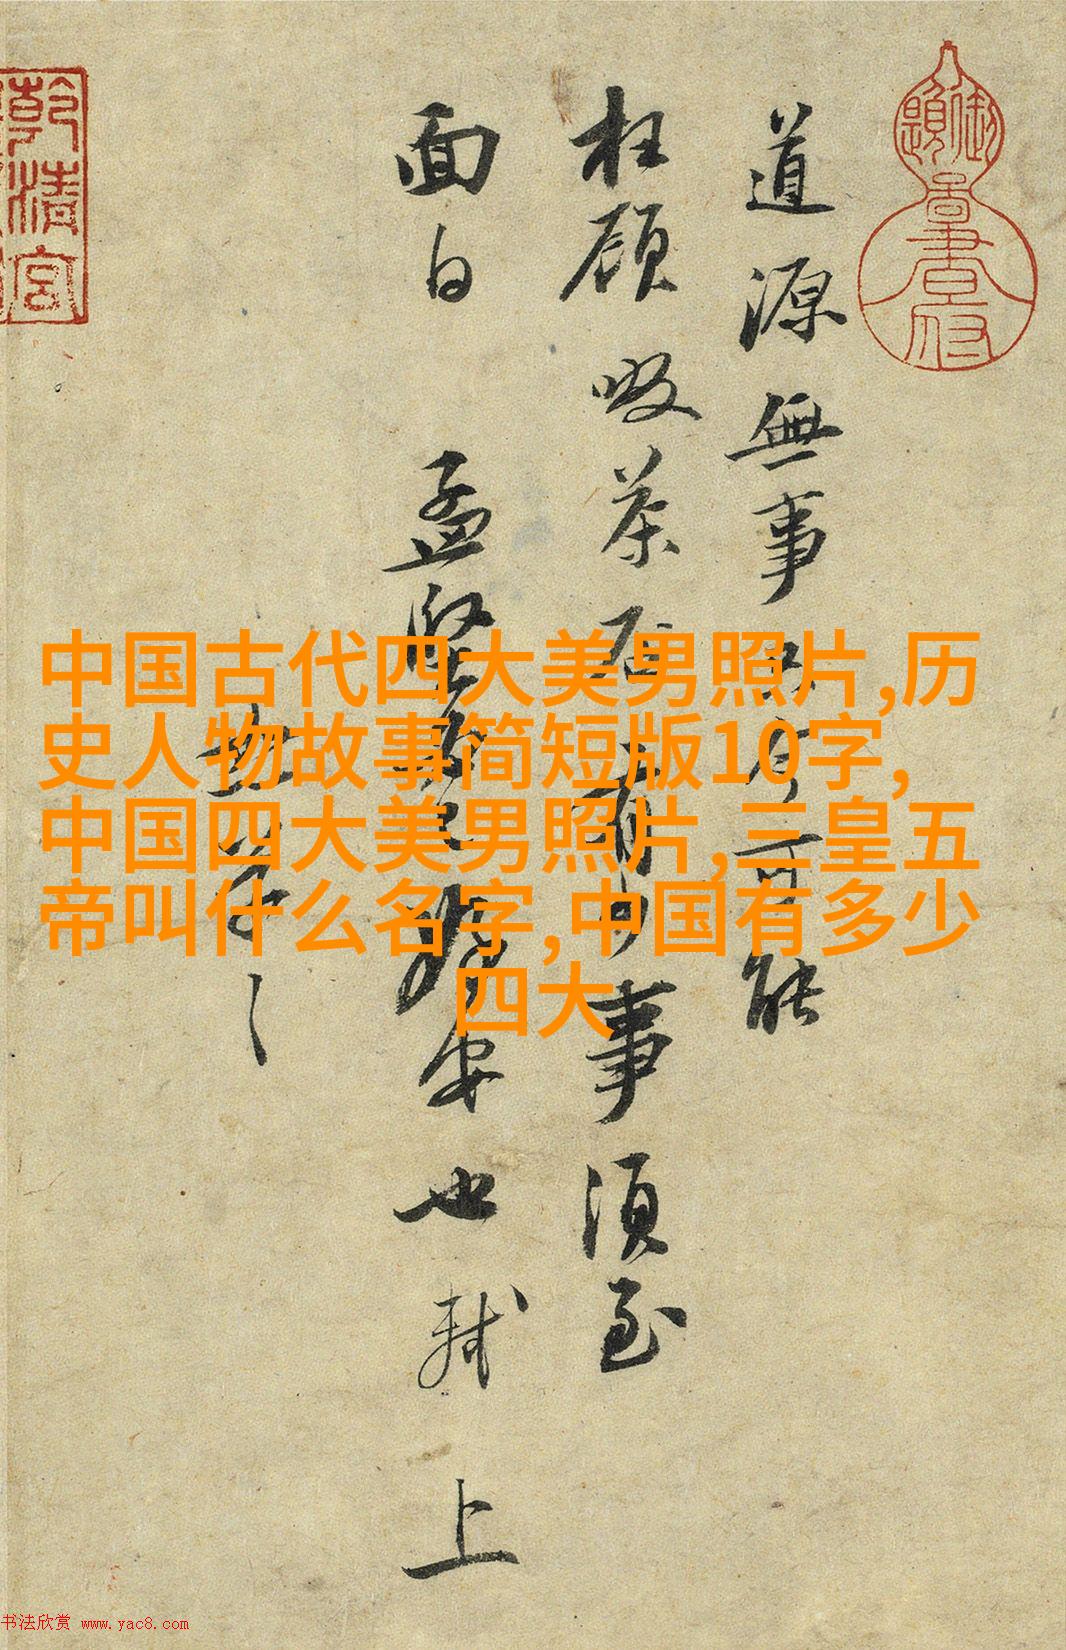 道源無事
能
枉顧啜茶否有少事須至
面白 孟堅 安也軾 上
中国古代四大美男照片,历
史人物故事简短版10字,
中国四大美男照片,三皇五
帝叫什么名字,中国有多少
四大
乾清宮
御題
書府
书法欣赏 www.yac8.com